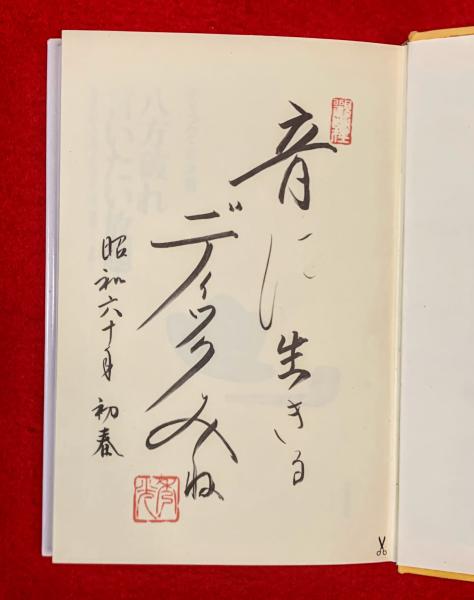 音に生きる
ディックみね
昭和六十年 初春